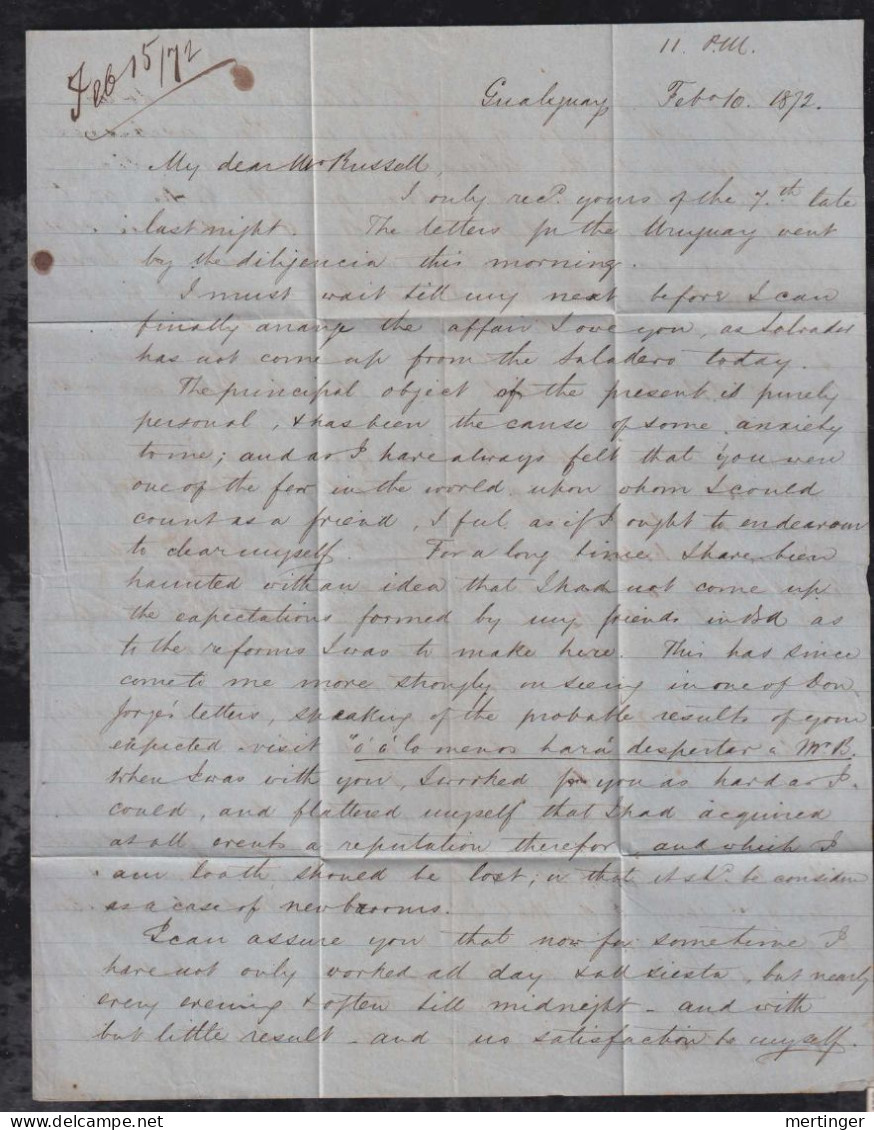 Feb 15/72
11 P.M.
Gualeguay Feby 10. 1872.
My dear Mr Russell,
I only recd. yours of the 7.th late
last night. The letters for the Uruguay went
by the diligencia this morning.
I must wait till my next before I can
finally arrange the affair I owe you, as Salvador
has not come up from the Saladero today.
The principal object of the present is purely
personal, & has been the cause of some anxiety
to me; and as I have always felt that you were
one of the few in the world upon whom I could
count as a friend, I feel as if I ought to endeavour
to clear myself. For a long time I have been
haunted with an idea that I had not come up
the expectations formed by my friends in as
to the reforms I was to make here. This has since
come to me more strongly on seeing in one of Don
Jorge's letters, speaking of the probable results of your
expected visit "ó á lo menos hará despertar a Mr B.
When I was with you, I worked for you as hard as I
could, and flattered myself that I had acquired
at all events a reputation therefor, and which I
am loath should be lost, or that it shd. be consider
as a case of new brooms.
I can assure you that now for sometime I
have not only worked all day & all siesta, but nearly
every evening & often till midnight - and with
but little result - and no satisfaction to myself.
delcampe.net
mertinger